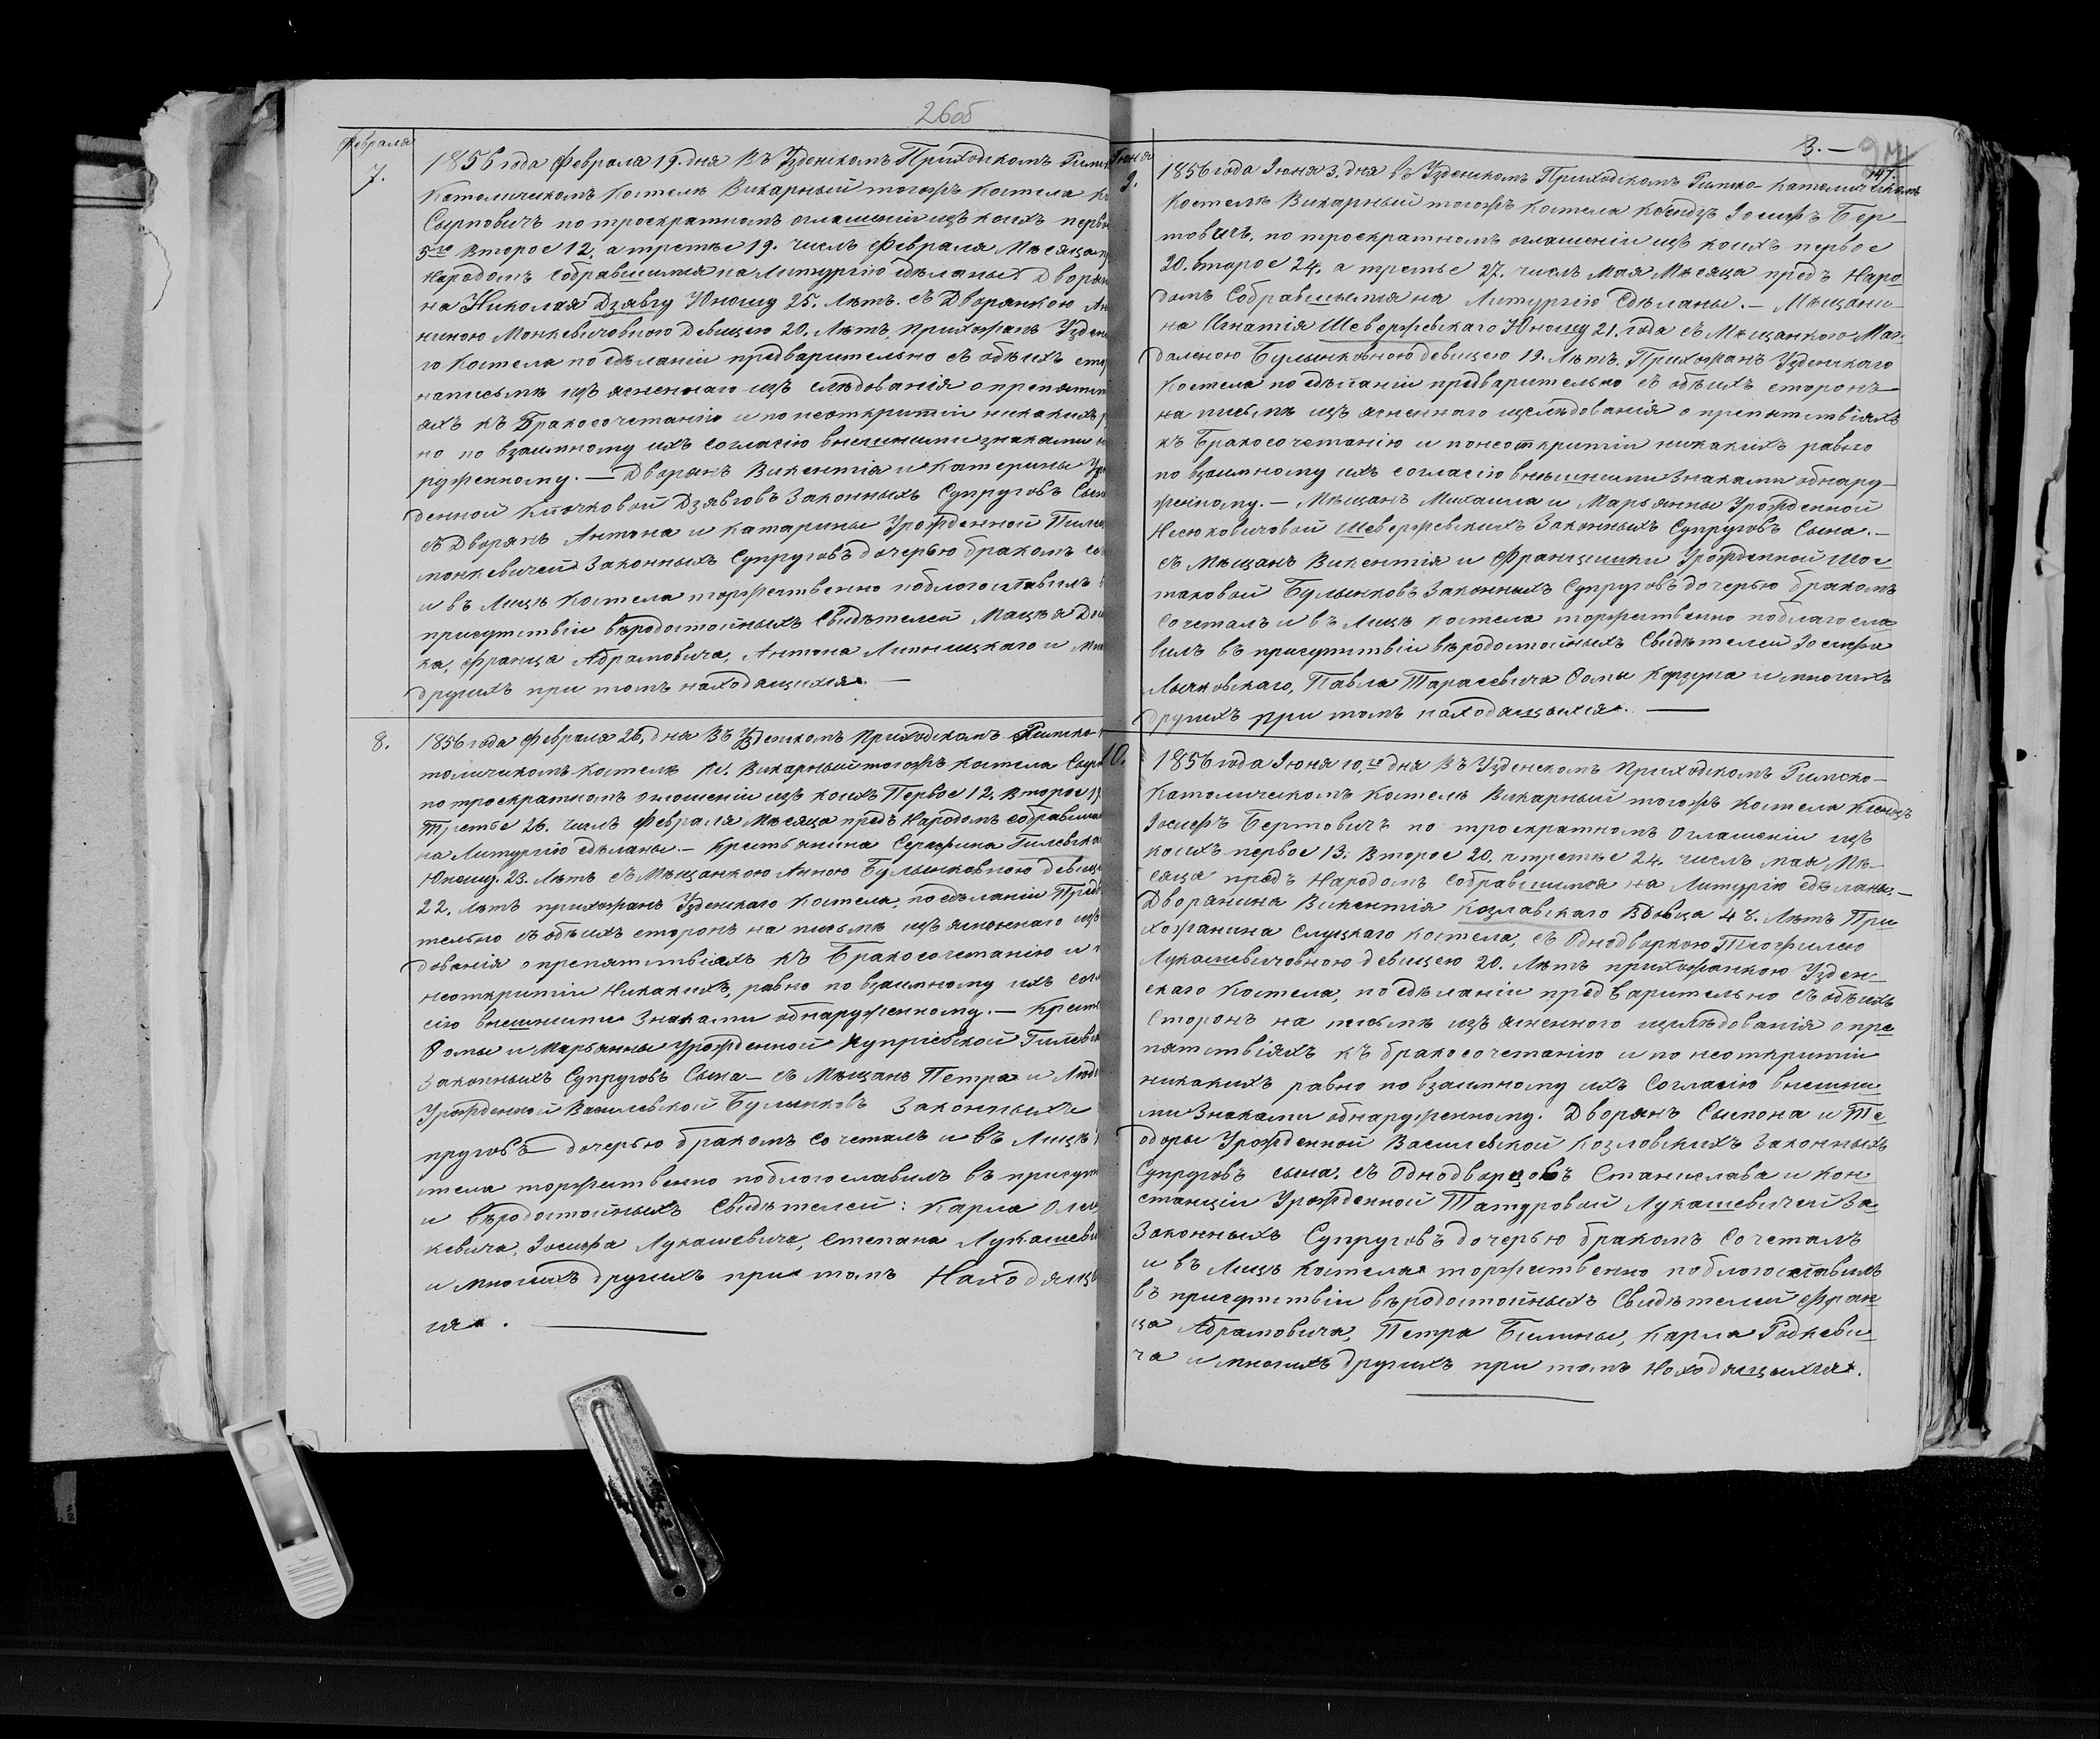 26об
Февраля
7.
1856 года Февраля 19. дня Въ Узденскомъ Приходскомъ Римс
Католическомъ Костелѣ Викарный тогожъ Костела К
Сырповичъ по троекратномъ оглашеніи изъ коихъ перв
5го Второе 12, а третье 19. числъ Февраля Мѣсяца п
Народомъ Собравшимся на Литургію сдѣланы. Дворян
на Николая Дзявгу Юношу 25. Лѣтъ. съ Дворянкою Ан
ниною Монкевичовною Девицею 20. Лѣтъ, прихожанъ Узденс
го Костела по сдѣланіи предварительно съ обѣихъ сто
написьмѣ изъ ясненнаго изъ слѣдованія о препятст
яхъ къ Бракосочетанію и по неоткрытіи никакихъ, р
но по взаимному ихъ согласію внешними знаками о
руженному. — Дворянъ Викентія и Катерины Уро
денной Дзявговъ Законныхъ Супруговъ Сын
съ Дворянъ Антона и Катарины Урожденной
монкевичей Законныхъ Супруговъ дочерью бракомъ со
и въ Лицѣ Костела торжественно поблогославилъ
присутствіи вѣродостойныхъ Свидѣтелей Мацѣя
ка, Франца Абрамовича, Антона Липницкаго и мн
другихъ при томъ находящихся. —
8.
1856 года Февраля 26, дня Въ Узденскомъ Приходскомъ Римско-
толическомъ Костелѣ Кс. Викарный тогожъ Костела Сырп
по троекратномъ оглошеніи изъ коихъ Первое 12. Второе 19
Третье 26. числъ Февраля Мѣсяца предъ Народомъ собравшим
на Литургію сдѣланы. — Крестьянина Серафина Гилевска
Юношу. 23. Лѣтъ съ Мѣщанкою Анною Булынковною девице
22. лѣтъ прихожанъ Узденскаго Костела, по сдѣланіи Пред
тельно съ обѣихъ сторонъ на письмѣ изъ ясненнаго изъ
дованія о препятствіяхъ къ Бракосочетанію и п
неоткрытіи Никакихъ, равно по взаимному ихъ сог
сію внешними Знаками обнаруженному. — Крест
Ѳомы и Марьянны Урожденной Купріевской Гилевс
Законныхъ Супруговъ Сына — съ Мѣщанъ Петра и
Урожденной Василевской Булынковъ Законныхъ
пруговъ дочерью бракомъ сочеталъ и въ Лицѣ
стела торжественно поблогославилъ въ присут
и вѣродостойныхъ Свидѣтелей: Карла Оле
кевича, Іосифа Лукашевича, Степана Лукашеви
и многихъ другихъ при томъ Находящи
ся. —
3. — 27
147.
Іюня
9.
1856 года Іюня 3. дня въ Узденскомъ Приходскомъ Римско-Католическомъ
Костелѣ Викарный тогожъ Костела Ксендзъ Іосифъ Бер-
товичъ, по троекратномъ оглашеніи изъ коихъ первое
20. второе 24, а третье 27. числъ Мая Мѣсяца предъ Наро
домъ Собравшымся на Литургію Сдѣланы. — Мѣщани-
на Игнатія Шевержевскаго Юношу 21. года съ Мѣщанкою Маг-
даленою Булынковною девицею 19. Лѣтъ. Прихожанъ Узденскаго
Костела по сдѣланіи предварительно съ обѣихъ сторонъ
на письмѣ изъ ясненнаго изслѣдованія о препятствіяхъ
къ Бракосочетанію и понеоткрытіи никакихъ равно
по взаимному ихъ согласію внѣшними Знаками обнару-
женому. — Мѣщанъ Михаила и Марьянны Урожденной
Несюковичовой Шевержевскихъ Законныхъ Супруговъ Сына. —
съ Мѣщанъ Викентія и Францишки Урожденной Шос
таковой Булынковъ Законныхъ Супруговъ дочерью бракомъ
Сочеталъ и въ Лицѣ Костела торжественно поблагосла
вилъ въ присутствіи вѣродостойныхъ Свидѣтелей Іосифа
Лычковскаго, Павла Тарасевича Ѳомы Корзуна и многихъ
другихъ при томъ находящыхся. —
10.
1856 года Іюня 10го дня Въ Узденскомъ Приходскомъ Римско-
Католическомъ Костелѣ Викарный тогожъ Костела Ксендзъ
Іосифъ Бертовичъ по троекратномъ Оглашеніи изъ
коихъ первое 13. Второе 20. а третье 24. числъ мая Мѣ-
сяца предъ Народомъ собравшимся на Литургію сдѣланы. —
Дворянина Викентія Козлавскаго Вдовца 48. Лѣтъ При
хожанина Слуцкаго костела, съ Однодворкою Теофилею
Лукашевичовною девицею 20. Лѣтъ прихожанкою Узден-
скаго Костела, по сдѣланіи предварительно съ обѣихъ
Сторонъ на письмѣ изъ ясненного изслѣдованія о пре
пятствіяхъ къ бракосочетанію и по неоткрытіи
никакихъ равно по взаимному ихъ Согласію внешни
ми Знаками обнаруженному. Дворянъ Сымона и Те
одоры Урожденной Василевской Козловскихъ Законныхъ
Супруговъ сына. съ Однодворцовъ Станислава и Кон
станціи Урожденной Татуровой Лукашевичей За
Законныхъ Супруговъ дочерью бракомъ Сочеталъ
и въ Лицѣ Костела торжественно поблогославилъ
въ присутствіи вѣродостойныхъ Свидѣтелей Фран
ца Абрамовича, Петра Билины, Карла Родкеви
ча и многихъ другихъ при томъ Находящыхся.